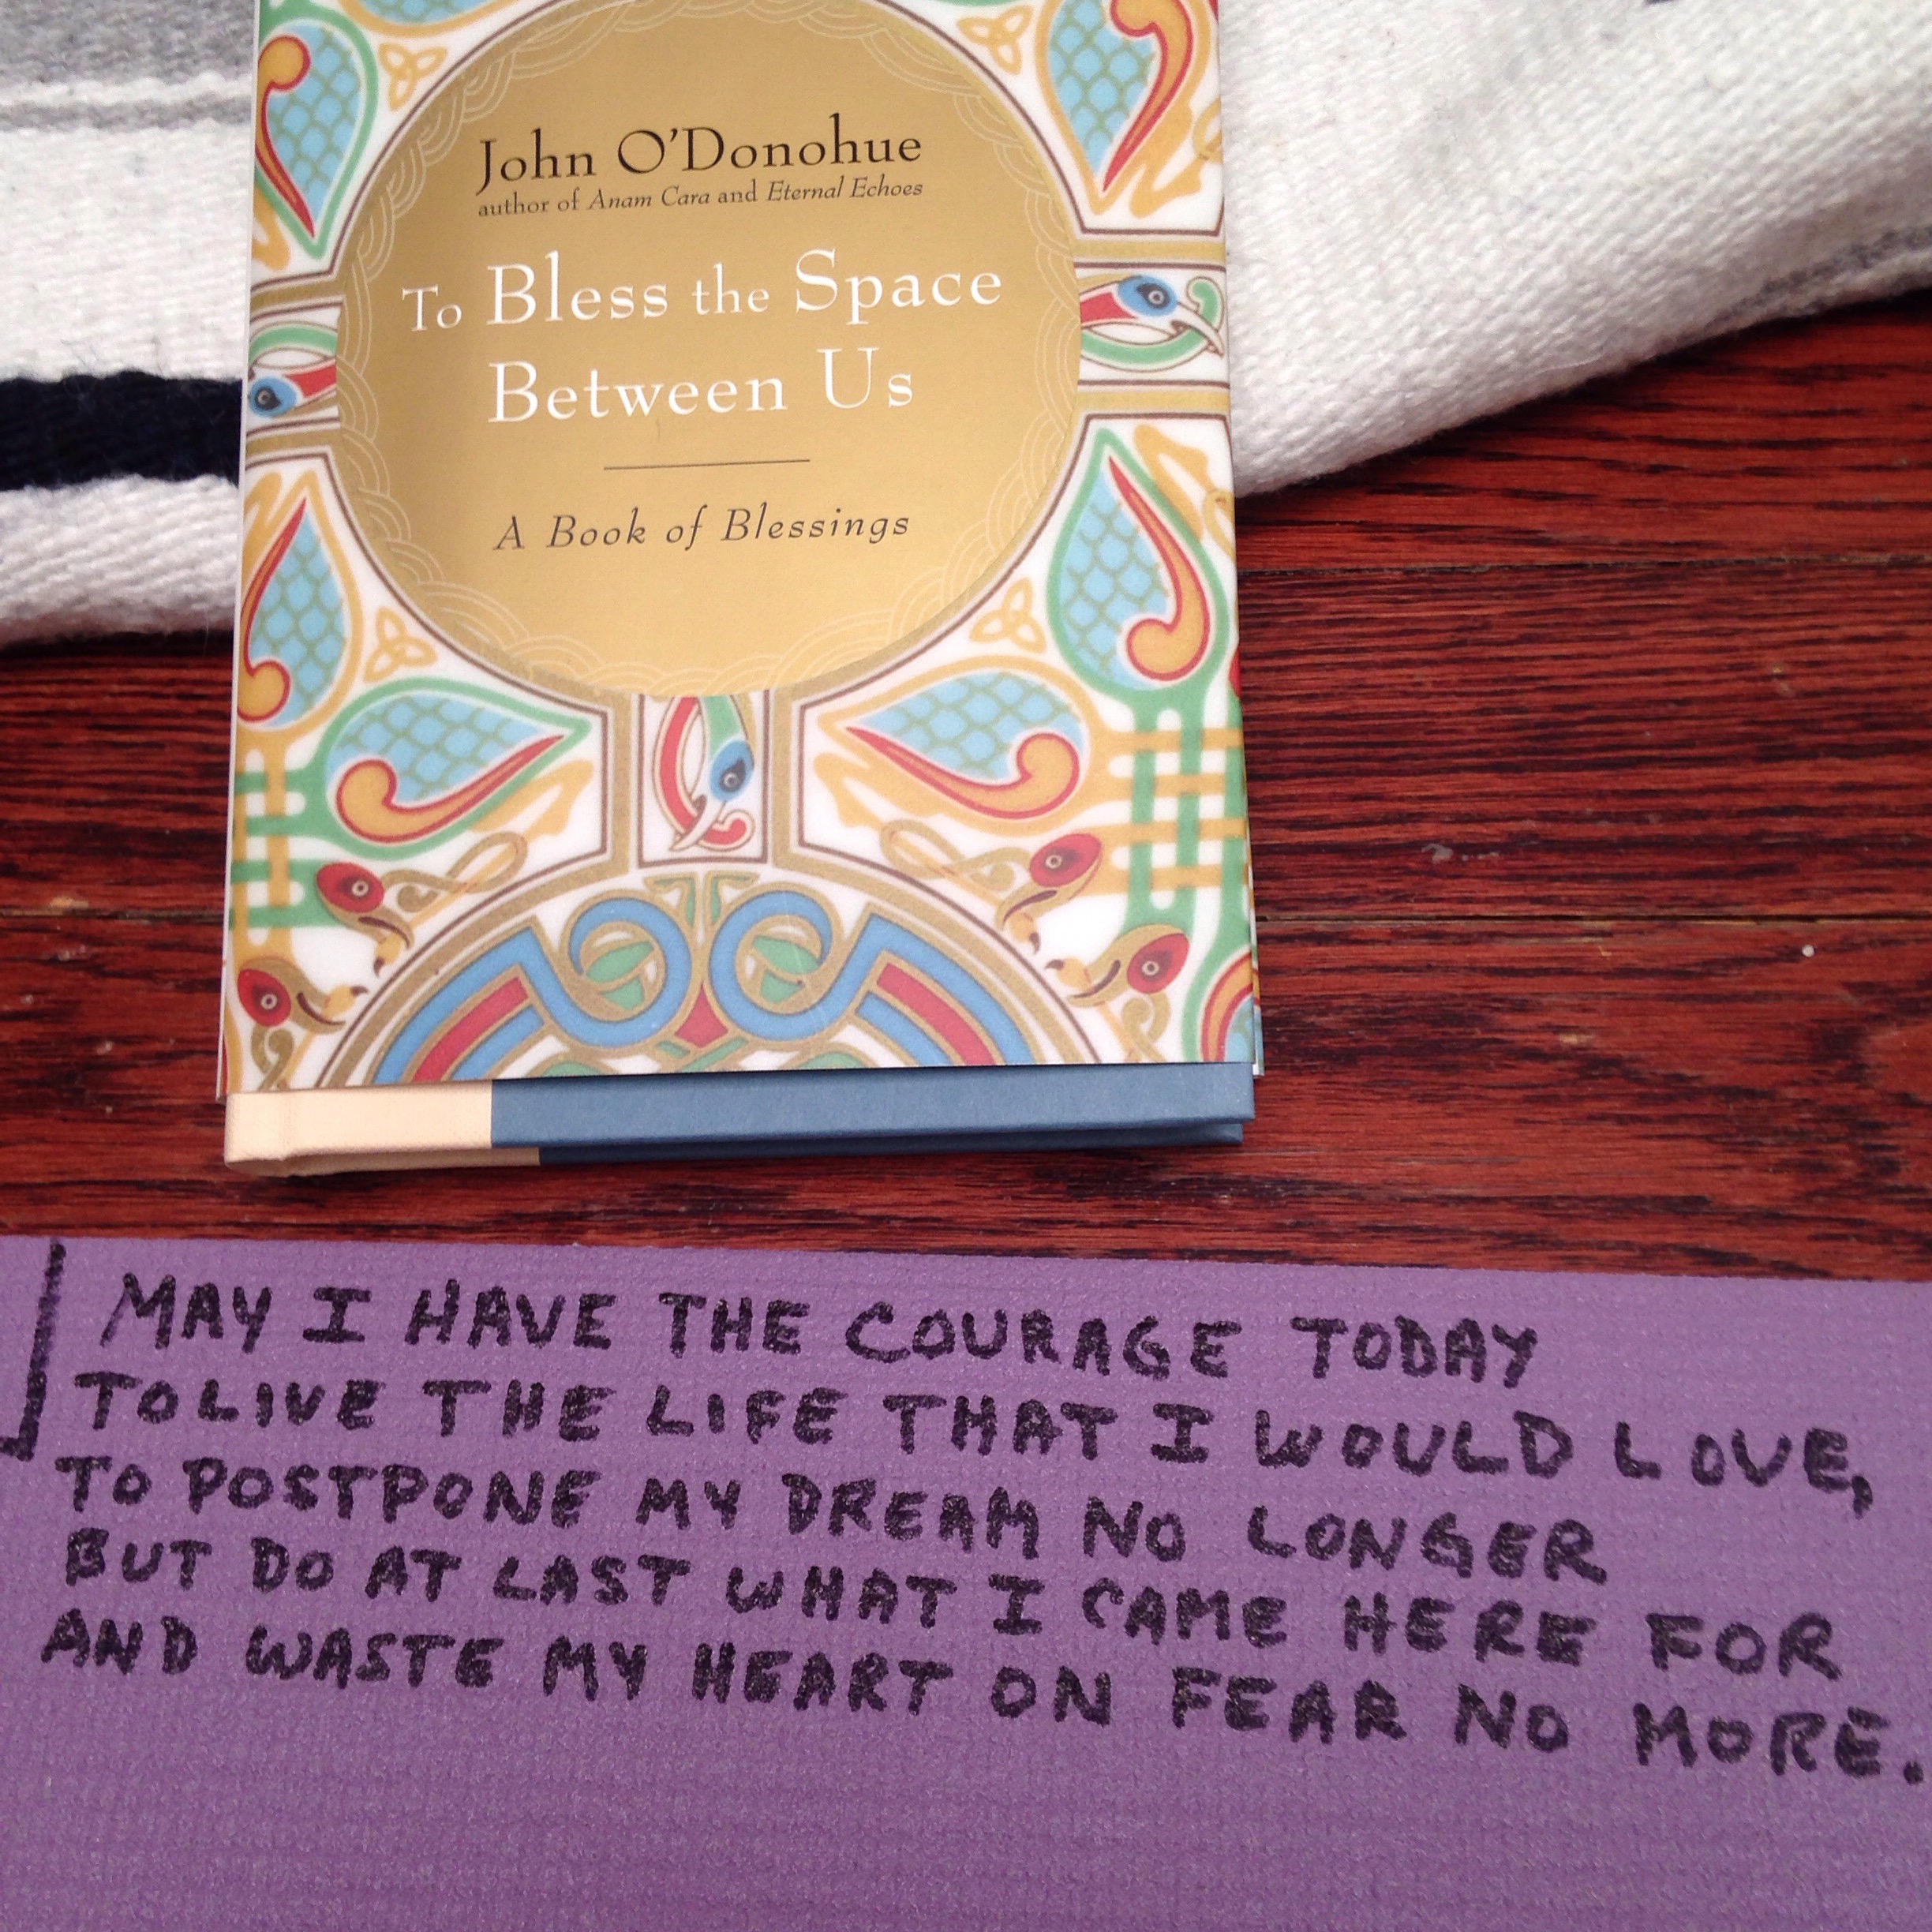 John O'Donohue
author of Anam Cara and Eternal Echoes
To Bless the Space
Between Us
A Book of Blessings
MAY I HAVE THE COURAGE TODAY
TO LIVE THE LIFE THAT I WOULD LOVE,
TO POSTPONE MY DREAM NO LONGER
BUT DO AT LAST WHAT I CAME HERE FOR
AND WASTE MY HEART ON FEAR NO MORE.